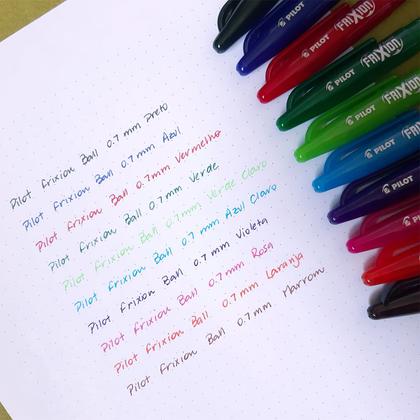 Pilot Frixion Ball 0.7 mm Preto
Pilot Frixion Ball 0.7 mm Azul
Pilot Frixion Ball 0.7mm Vermelho
Pilot Frixion Ball 0.7mm Verde
Pilot Frixion Ball 0.7mm Verde Claro
Pilot Frixion Ball 0.7 mm Azul Claro
Pilot Frixion Ball 0.7 mm Violeta
Pilot Frixion Ball 0.7 mm Rosa
Pilot Frixion Ball 0.7 mm Laranja
Pilot Frixion Ball 0.7 mm Marrom
PILOT FRIXION
PILOT FRIXION
PILOT FRIXION
PILOT
PILOT
PILOT